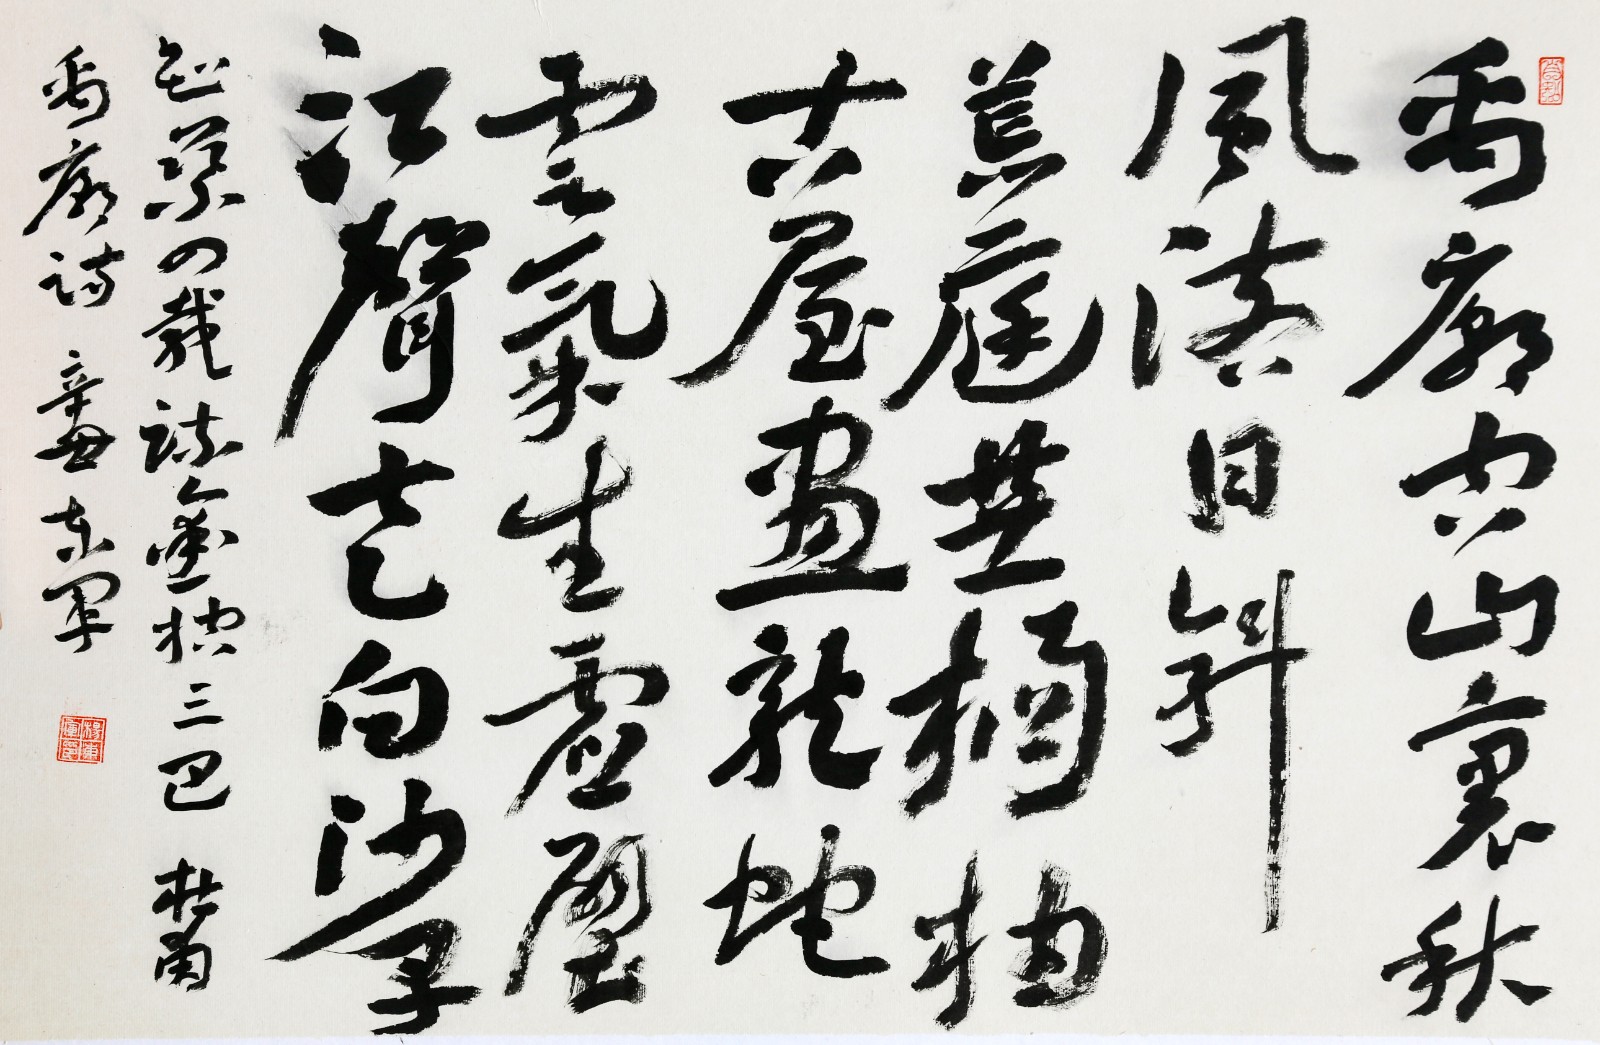 禹廟空山裏秋
風落日斜
荒庭垂橘柚
古屋畫龍蛇
雲氣生虛壁
江聲走白沙早
知乘四載疏鑿控三巴 杜甫
禹廟詩 辛丑 東軍
楊東軍印